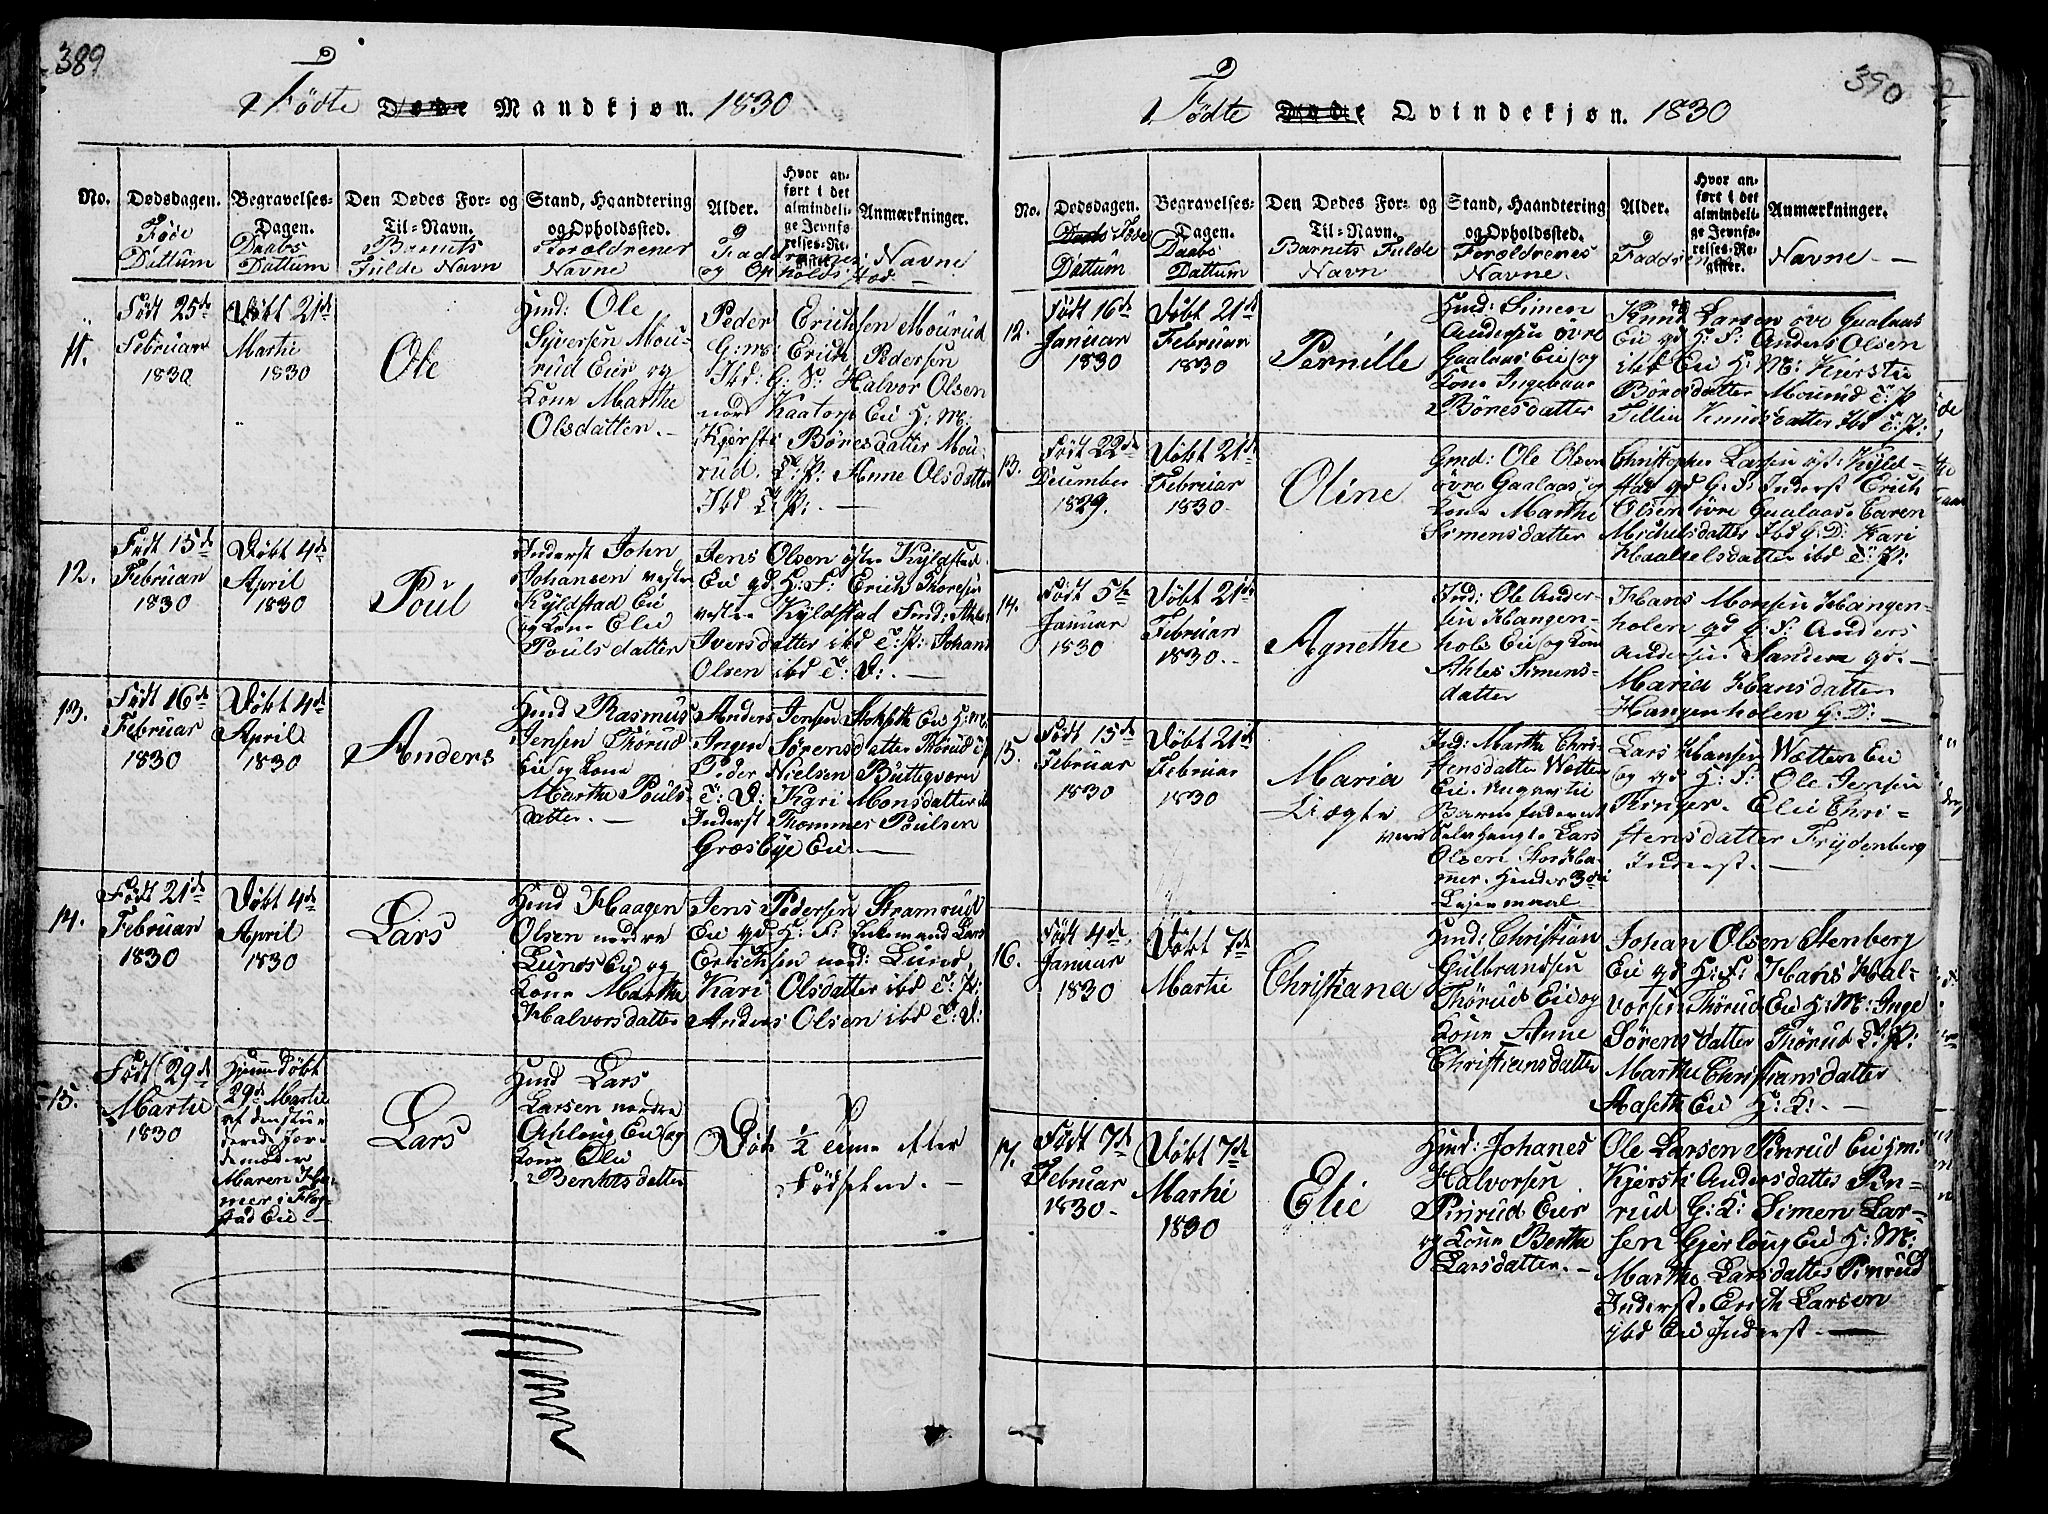 389
Fødte Døde Mandkjøn. 1830
No.
Dødsdagen.
Føde
Dattum
Begravelses-
Dagen.
Daabs
Dattum
Den Dødes For- og
Til-Navn.
Barnets
Fulde Navn
Stand, Haandtering
og Opholdssted.
Foroldrenes
Navne
Alder.
Hvor an-
ført i det
almindeli-
ge Jevnfø-
relses-Re-
gister.
Anmærkninger.
Faddrenes Navne
og Opholdsstæd
11.
Født 25de
Februar
1830
Døbt 21de
Martie
1830
Ole
Huud: Ole
Syversen Mou-
rud Eier og
Kone Marthe
Olsdatter.
Peder Erichsen Mourud
G:m: Erich Pedersen
Ibd: G: S: Halvor Olsen
nor Kaatorp Eie H: M:
Kjersti Børesdatter Mou-
rud. T: P: Anne Olsdatter
Ibd T: P:
12.
Født 15de
Februar
1830
Døbt 4de
April
1830
Poul
Inderst John
Johansen vestre
Kyldstad Eie
og Kone Elie
Poulsdatter
Jens Olsen østre Kyldstad
Eie gd H: F: Erich Thoresen
vestre Kyldstad Ind:
Iversdatter ibd T: P: Johan
Olsen ibd T: D:
13.
Født 16de
Februar
1830
Døbt 4de
April
1830
Anders
Huud Rasmus
Jensen Thørud
Eie og Kone
Marthe Pouls-
datter.
Anders Jensen Eie H: M:
Inger Sørensdatter Thørud T: P
Peder Nielsen Büttegværn
T: D: Kari Monsdatter
Inderst Thommes Poulsen
Græsbye Eie
14.
Født 21de
Februar
1830
Døbt 4de
April
1830
Lars
Huud Haagen
Olsen nordre
Lunds Eie og
Kone Marthe
Halvorsdatter
Jens Pedersen Stramrud
Eie gd H: F: Enkemand Lars
Erichsen nord: Lund
Kari Olsdatter ibd T: P:
Anders Olsen ibd T: D:
15.
Født 29de
Martie
1830
Hjemmedøbt
29de Martie
af den stu-
derede Jor-
demoder
Maren Ha-
mer i Flag-
stad Eie
Lars
Huud Lars
Larsen nordre
Eie og
Kone Elie
Bentsdatter
Død ½ time efter
Fødselen.
390
Fødte Døde Qvindekjøn. 1830
No.
Dødsdagen.
Daabs Føde
Dattum
Begravelses-
Dagen.
Daabs
Dattum
Den Dødes For- og
Til-Navn.
Barnets Fulde
Navn
Stand, Haandtering
og Opholdssted.
Foroldrenes
Navne.
Alder.
Hvor an-
ført i det
almindeli-
ge Jevnfø-
relses-Re-
gister.
Anmærkninger.
Faddrenes Navne
12.
Født 16de
Januar
1830
Døbt 21de
Februar
1830
Pernille
Huud: Simen
Andersen øvre
Gaalaas Eie og
Kone Ingebaar
Børesdatter
Knud Larsen øvre Gaalaas
Eie gd H: F: Anders Olsen
ibd Eie H: M: Kiersti
Børesdatter Mourud T: P
Sillie Knudsdatter Ibd T: P:
13.
Født 22de
December
1829.
Døbt 21de
Februar
1830
Oline
Gmd: Ole Olsen
øvre Gaalaas og
Kone Marthe
Simensdatter
Christopher Larsen øst: Kyld-
stad gd G: F: Inderst Erich
Olsen øvre Gaalaas. Caren
Michelsdatter Ibd G: D: Kari
ibd T: P:
14.
Født 5te
Januar
1830
Døbt 21de
Februar
1830.
Agnethe
Ind: Ole Ander-
sen Hangen-
hols Eie og Kone
Ahles Simens-
datter
Hans Monsen Hangen-
holen gd G: F: Anders
Andersen Sanden gd.
Maria Hansdatter
Hangenholen G: D:
15.
Født 15de
Februar
1830
Døbt 21de
Februar
1830
Maria
Uægte
Ind: Marthe Chri-
stensdatter Wetten
Eie.
Barnefader ud-
være Selvhengte Lars
Olsen Stor Ha-
mer. Hendes 3die
Lejermaal
Lars Hansen Wetten Eie
og gd H: F: Ole Jensen
Ringer. Elie Chri-
stensdatter Frydenberg
Inderst.
16.
Født 4de
Januar
1830
Døbt 7de
Martie
Christiana
Huud: Christian
Gulbrandsen
Thørud Eie og
Kone Anne
Christiansdatter
Johan Olsen Stenberg
Eie gd H: F: Hans Hal-
vorsen Thørud Eie H: M: Inge
Sørensdatter Thørud T: P:
Marthe Christiansdatter
Aaseth Eie H: K:
17.
Født 7de
Februar
1830
Døbt 7de
Martie
1830
Elie
Huud: Johanes
Halvorsen
Pinrud Eier
og Kone Berthe
Larsdatter.
Ole Larsen Pinrud Eie gm:
Kjersti Andersdatter Pin-
rud G: K: Simen Lar-
sen Gjerloug Eie H: M:
Marthe Larsdatter Pinrud
Inderst. Erich Larsen
ibd Eie Inderst.